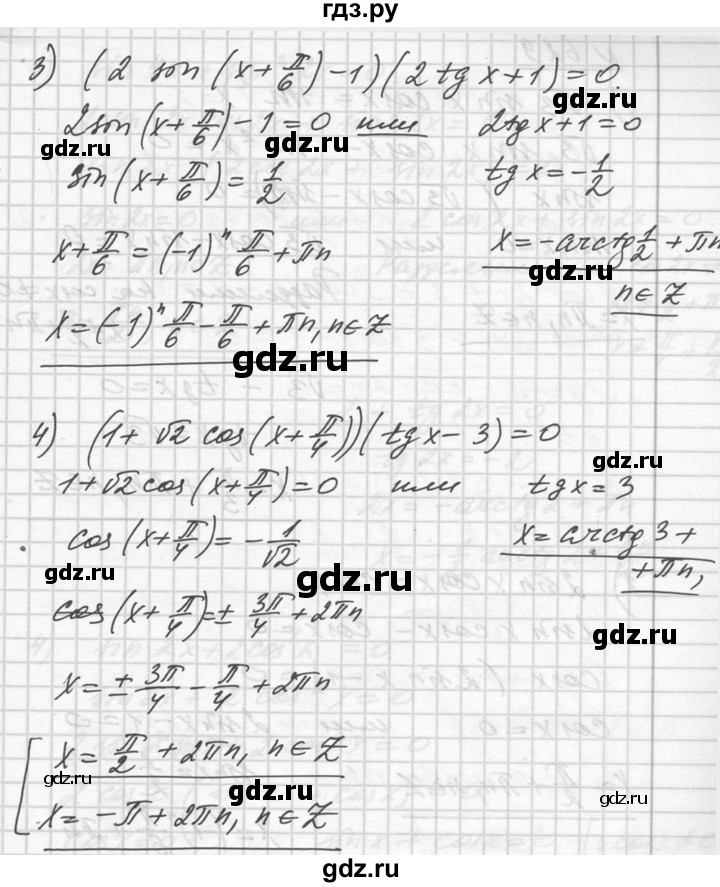 гдз.ру
3) (2 sin (x + π/6) - 1)(2 tg x + 1) = 0
2 sin (x + π/6) - 1 = 0 или 2tg x + 1 = 0
gdz.ru
gdz.ru
sin (x + π/6) = 1/2 tg x = -1/2
x + π/6 = (-1)^n π/6 + πn x = -arctg 1/2 + πn
gdz.ru
n ∈ Z
x = (-1)^n π/6 - π/6 + πn, n ∈ Z
gdz.ru
4) (1 + √2 cos (x + π/4))(tg x - 3) = 0
1 + √2 cos (x + π/4) = 0 или tg x = 3
gdz.ru
cos (x + π/4) = - 1/√2 x = arctg 3 +
+ πn,
gdz.ru
gdz.ru
cos (x + π/4) = ± 3π/4 + 2πn
gdz.ru
x = ± 3π/4 - π/4 + 2πn
x = π/2 + 2πn, n ∈ Z
gdz.ru
gdz.ru
gdz.ru
x = -π + 2πn, n ∈ Z
gdz.ru
gdz.ru